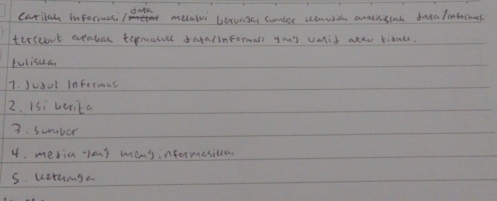 Carilah Informasi/data melalui berbagai sumber kemudian analisislah data/informasi
tersebut apakah termasuk data/informasi yang valid atau tidak.
tuliskan
1. Judul Informasi
2. Isi berita
3. Sumber
4. media yang menginformasikan
5. keterangan